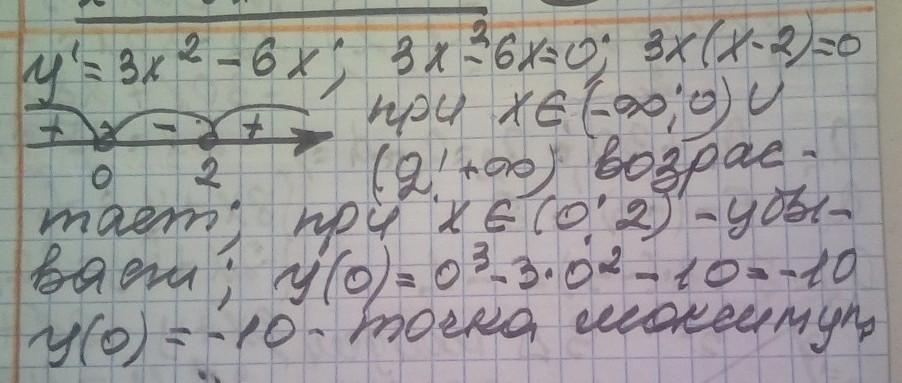 y' = 3x² - 6x; 3x³-6x=0; 3x(x-2)=0
+ - + при x∈(-∞;0)∪
0 2 (2;+∞) возрас-
тает; при x∈(0;2) - убы-
вает; y(0)=0³-3·0²-10=-10
y(0)=-10 - точка максимума